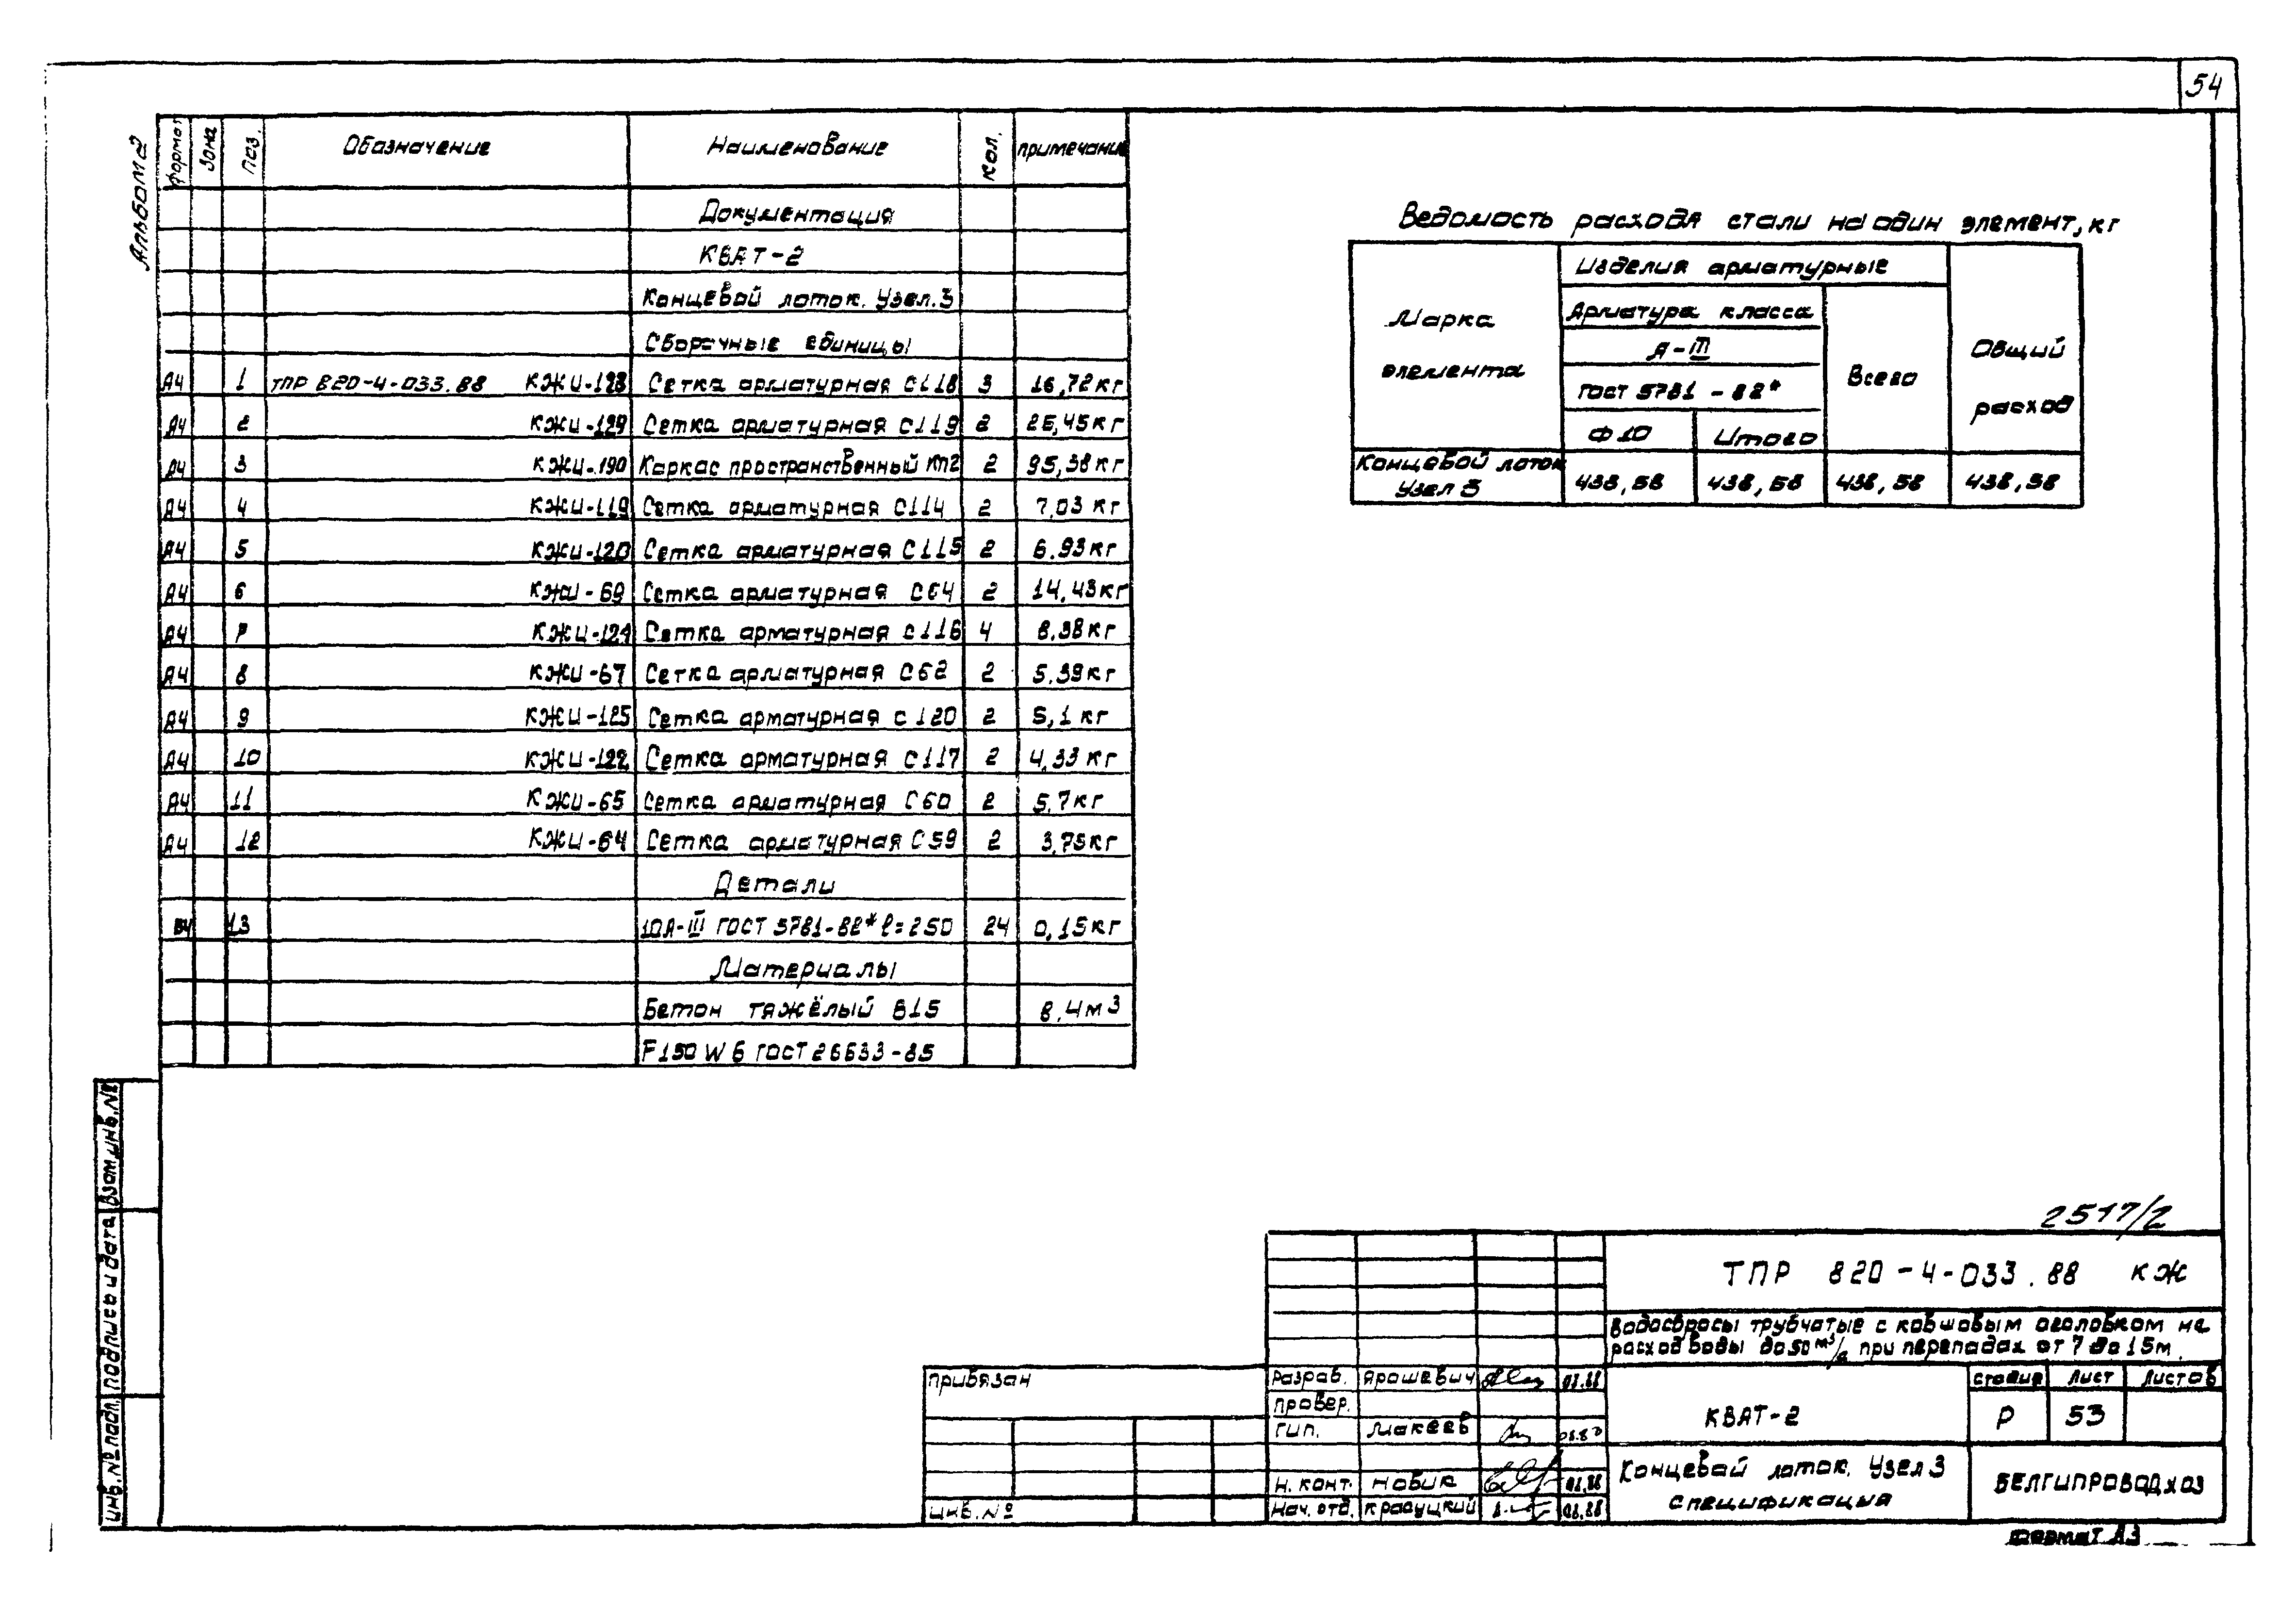 54
Альбом 2
Формат Зона Поз. Обозначение Наименование Кол. Примечание
Документация
КВАТ-2
Концевой лоток. Узел.3
Сборочные единицы
А4 1 ТПР 820-4-033.88 КЖИ-128 Сетка арматурная С118 3 16,72кг
А4 2 КЖИ-129 Сетка арматурная С119 2 25,45кг
А4 3 КЖИ-190 Каркас пространственный КП2 2 95,38кг
А4 4 КЖИ-119 Сетка арматурная С114 2 7,03 кг
А4 5 КЖИ-120 Сетка арматурная С115 2 6.93кг
А4 6 КЖИ-69 Сетка арматурная С64 2 14,43кг
А4 7 КЖИ-124 Сетка арматурная С116 4 8.38кг
А4 8 КЖИ-67 Сетка арматурная С62 2 5.39кг
А4 9 КЖИ-125 Сетка арматурная С120 2 5,1 кг
А4 10 КЖИ-122 Сетка арматурная С117 2 4,33 кг
А4 11 КЖИ-65 Сетка арматурная С60 2 5,7кг
А4 12 КЖИ-64 Сетка арматурная С59 2 3,75кг
Детали
БЧ 13 10А-III ГОСТ 5781-82* ℓ=250 24 0,15кг
Материалы
Бетон тяжёлый В15 8,4м³
F150 W6 ГОСТ 26633-85
Ведомость расхода стали на один элемент, кг
Марка элемента
Изделия арматурные
Арматура класса
А-III
ГОСТ 5781-82*
Ф10 Итого
Всего
Общий расход
Концевой лоток Узел 3 438,58 438,58 438,58 438,58
2517/2
ТПР 820-4-033.88 КЖ
Водосбросы трубчатые с ковшовым оголовком на
расход воды до 50 м³/с при перепадах от 7 до 15м.
Привязан
Инв.№
Разраб. Ярошевич 08.88
Провер.
ГИП. Макеев
Н. конт. Новик 08.88
Нач. отд. Кравуцкий 08.88
КВАТ-2
Стадия Лист Листов
Р 53
Концевой лоток. Узел 3
спецификация
БЕЛГИПРОВОДХОЗ
Формат А3
Взам.инв.№
Подпись и дата
Инв.№ подл.